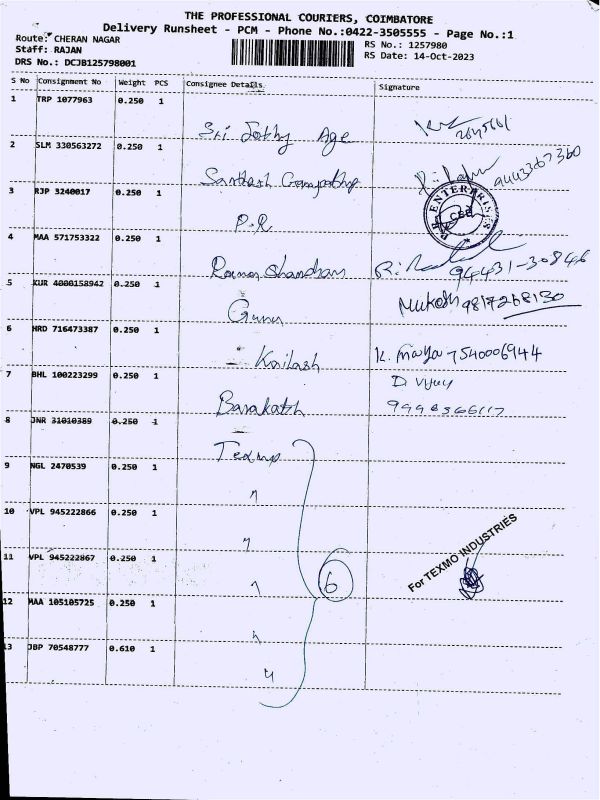 THE PROFESSIONAL COURIERS, COIMBATORE
Delivery Runsheet - PCM - Phone No.:0422-3505555 - Page No.:1
Route: CHERAN NAGAR
RS No.: 1257980
Staff: RAJAN
RS Date: 14-Oct-2023
DRS No.: DCJB125798001
S No Consignment No Weight PCS Consignee Details Signature
1 TRP 1077963 0.250 1
Sri Jothy Age
2 SLM 330563272 0.250 1
Santhosh Ganapathy 9443367360
3 RJP 3240017 0.250 1
P.R
ENTERPRISES
CBE
4 MAA 571753322 0.250 1
94431-30846
5 KUR 4000158942 0.250 1
Guru Mukesh 9817268130
6 HRD 716473387 0.250 1
Kailash K. Maya 7540006944
7 BHL 100223299 0.250 1
D Vijay
Barakath
8 JNR 31010389 0.250 1
Texmo
9 NGL 2470539 0.250 1
"
10 VPL 945222866 0.250 1
"
For TEXMO INDUSTRIES
11 VPL 945222867 0.250 1
" 6
12 MAA 105105725 0.250 1
"
13 JBP 70548777 0.610 1
"